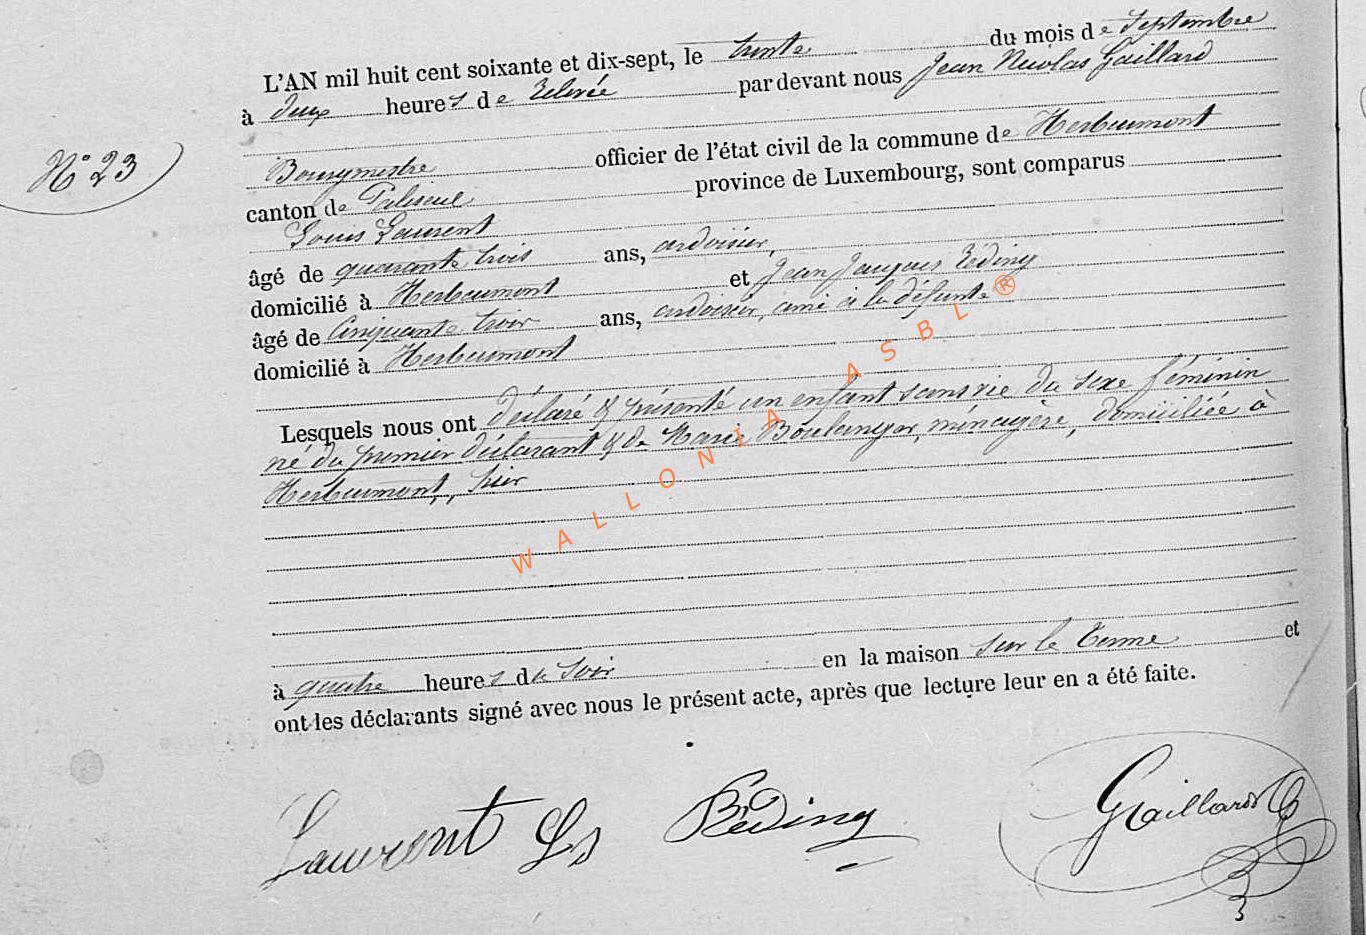 L'AN mil huit cent soixante et dix-sept, le trente du mois de Septembre
à deux heures de relevée par devant nous Jean Nicolas Gaillard
N° 23
Bourgmestre officier de l'état civil de la commune de Herbeumont
canton de Paliseul province de Luxembourg, sont comparus
Louis Laurent
âgé de quarante trois ans, ardoisier,
domicilié à Herbeumont et Jean Jacques Réding
âgé de Cinquante trois ans, ardoisier, ami à la défunte
domicilié à Herbeumont
Lesquels nous ont déclaré & présenté un enfant sans vie du sexe féminin
né du premier déclarant & de Marie Boulanger, ménagère, domiciliée à
Herbeumont, hier
à quatre heures du Soir en la maison sur le Terme et
ont les déclarants signé avec nous le présent acte, après que lecture leur en a été faite.
Laurent Ls Réding Gaillard
WALLONIA ASBL ®